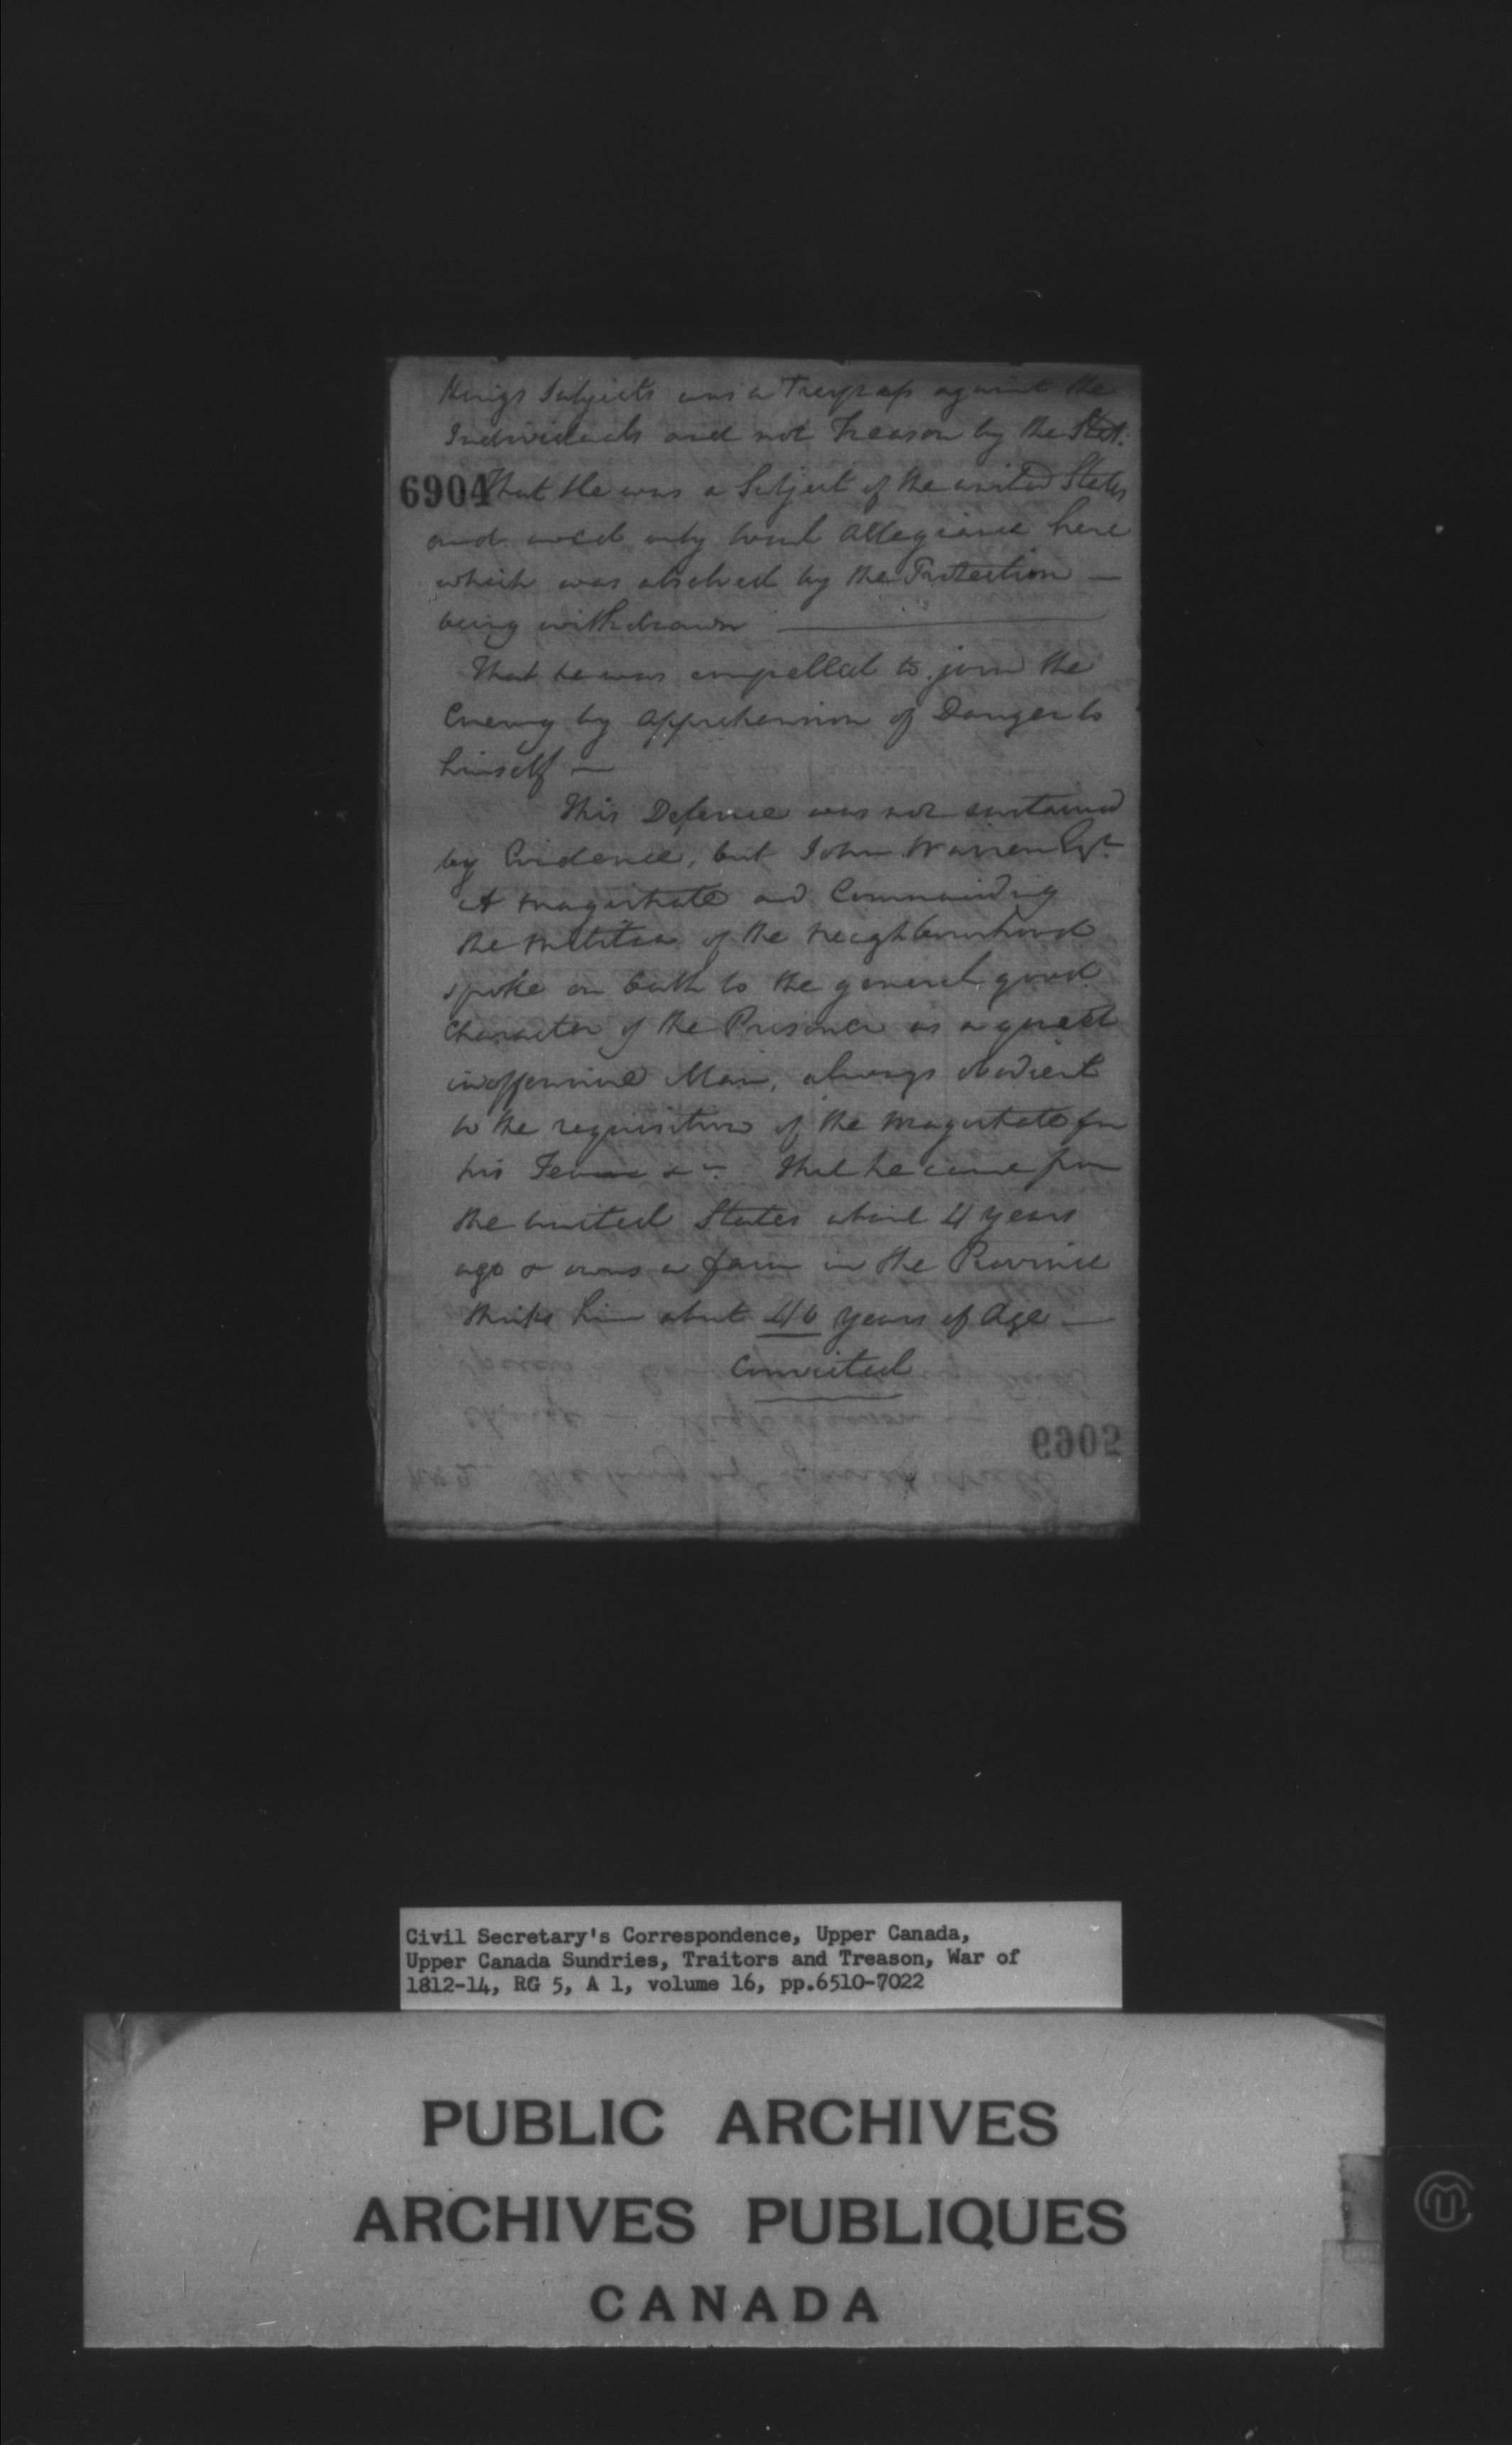 Kings Subjects was a Trespass against the
Individuals and not Treason by the Stat.
6904
That He was a Subject of the united States
and owed only local allegiance here
which was absolved by the Protection —
being withdrawn —
That he was compelled to join the
Enemy by apprehension of Danger to
himself —
This Defence was not sustained
by Evidence, but John Warren Esqr.
A magistrate and Commanding
the militia of the neighbourhood
spoke on Oath to the general good
Character of the Prisoner as a quiet
inoffensive Man, always obedient
to the requisition of the magistrate for
his Team &c. That he came from
the United States about 4 years
ago & owns a farm in the Province
thinks him about 46 years of Age —
Convicted
6905
Civil Secretary's Correspondence, Upper Canada,
Upper Canada Sundries, Traitors and Treason, War of
1812-14, RG 5, A 1, volume 16, pp.6510-7022
PUBLIC ARCHIVES
ARCHIVES PUBLIQUES
CANADA